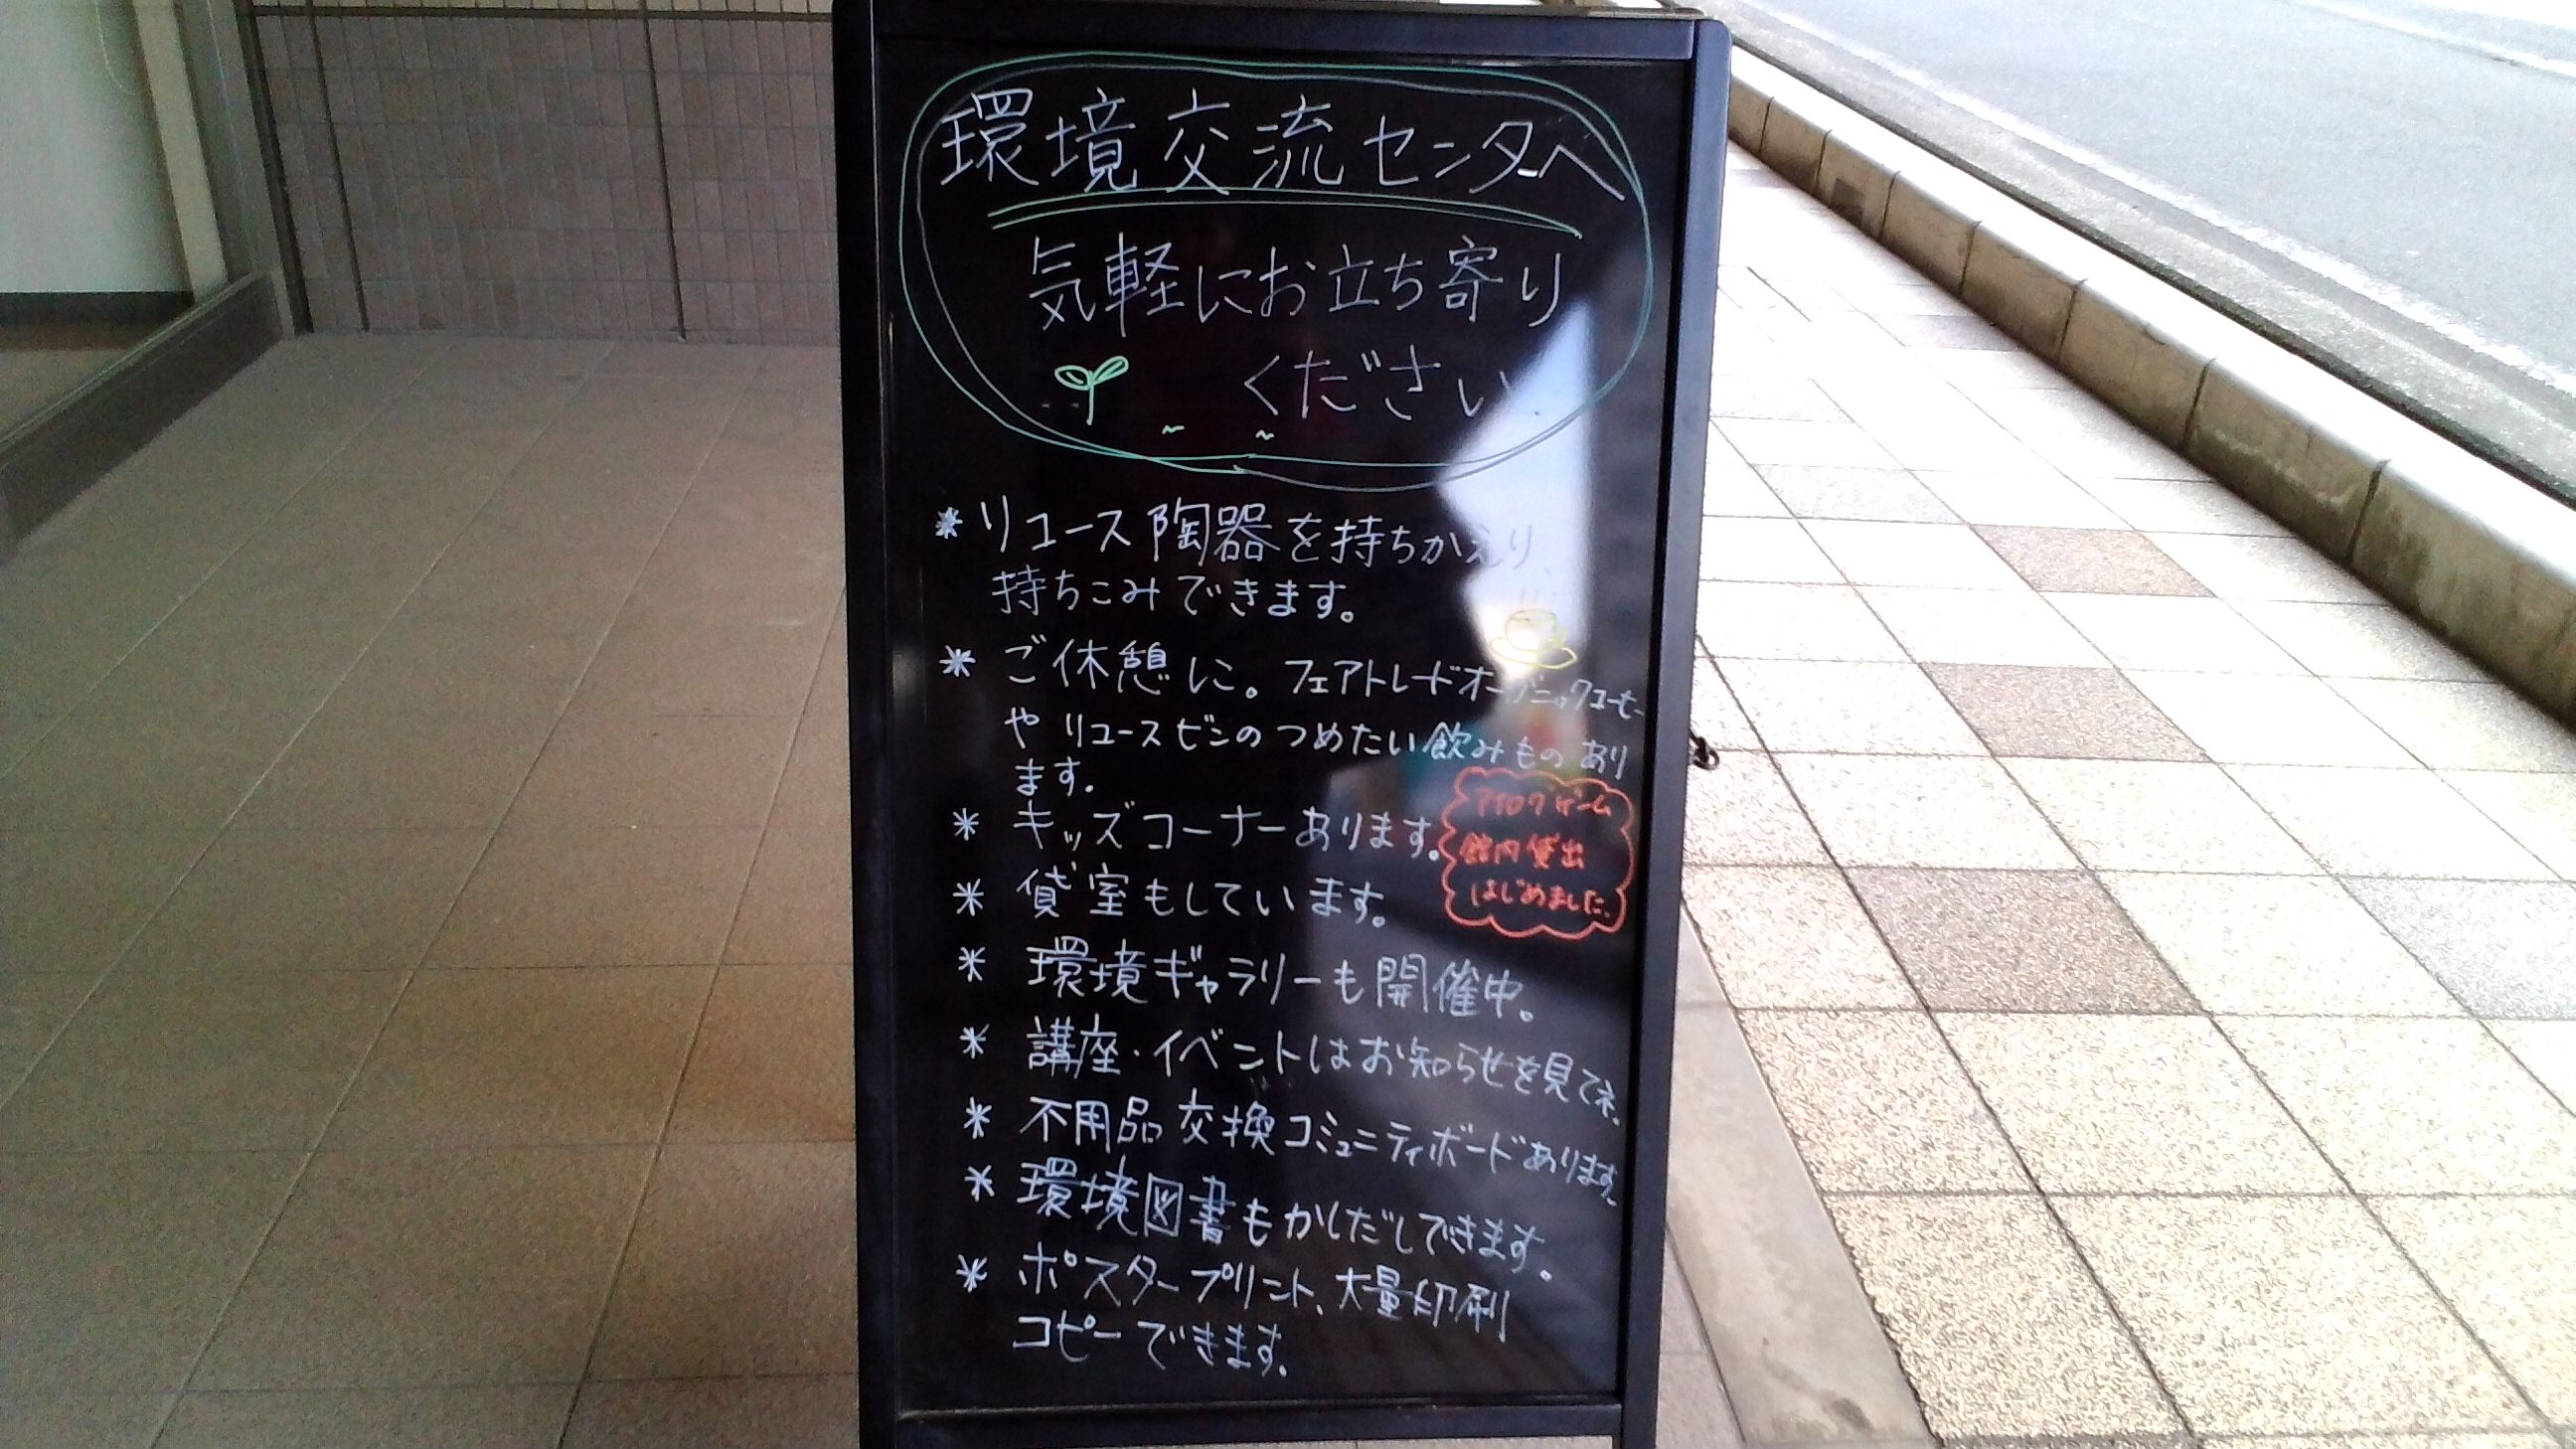 環境交流センターへ
気軽にお立ち寄り
ください
* リユース陶器を持ちかえり、
持ちこみできます。
* ご休憩に。フェアトレードオーガニックコーヒー
や リユースビンのつめたい飲みものあり
ます。
* キッズコーナーあります。
アナログゲーム
館内貸出
はじめました。
* 貸室もしています。
* 環境ギャラリーも開催中。
* 講座・イベントはお知らせを見てネ。
* 不用品交換コミュニティボードあります。
* 環境図書もかしだしできます。
* ポスタープリント、大量印刷
コピーできます。